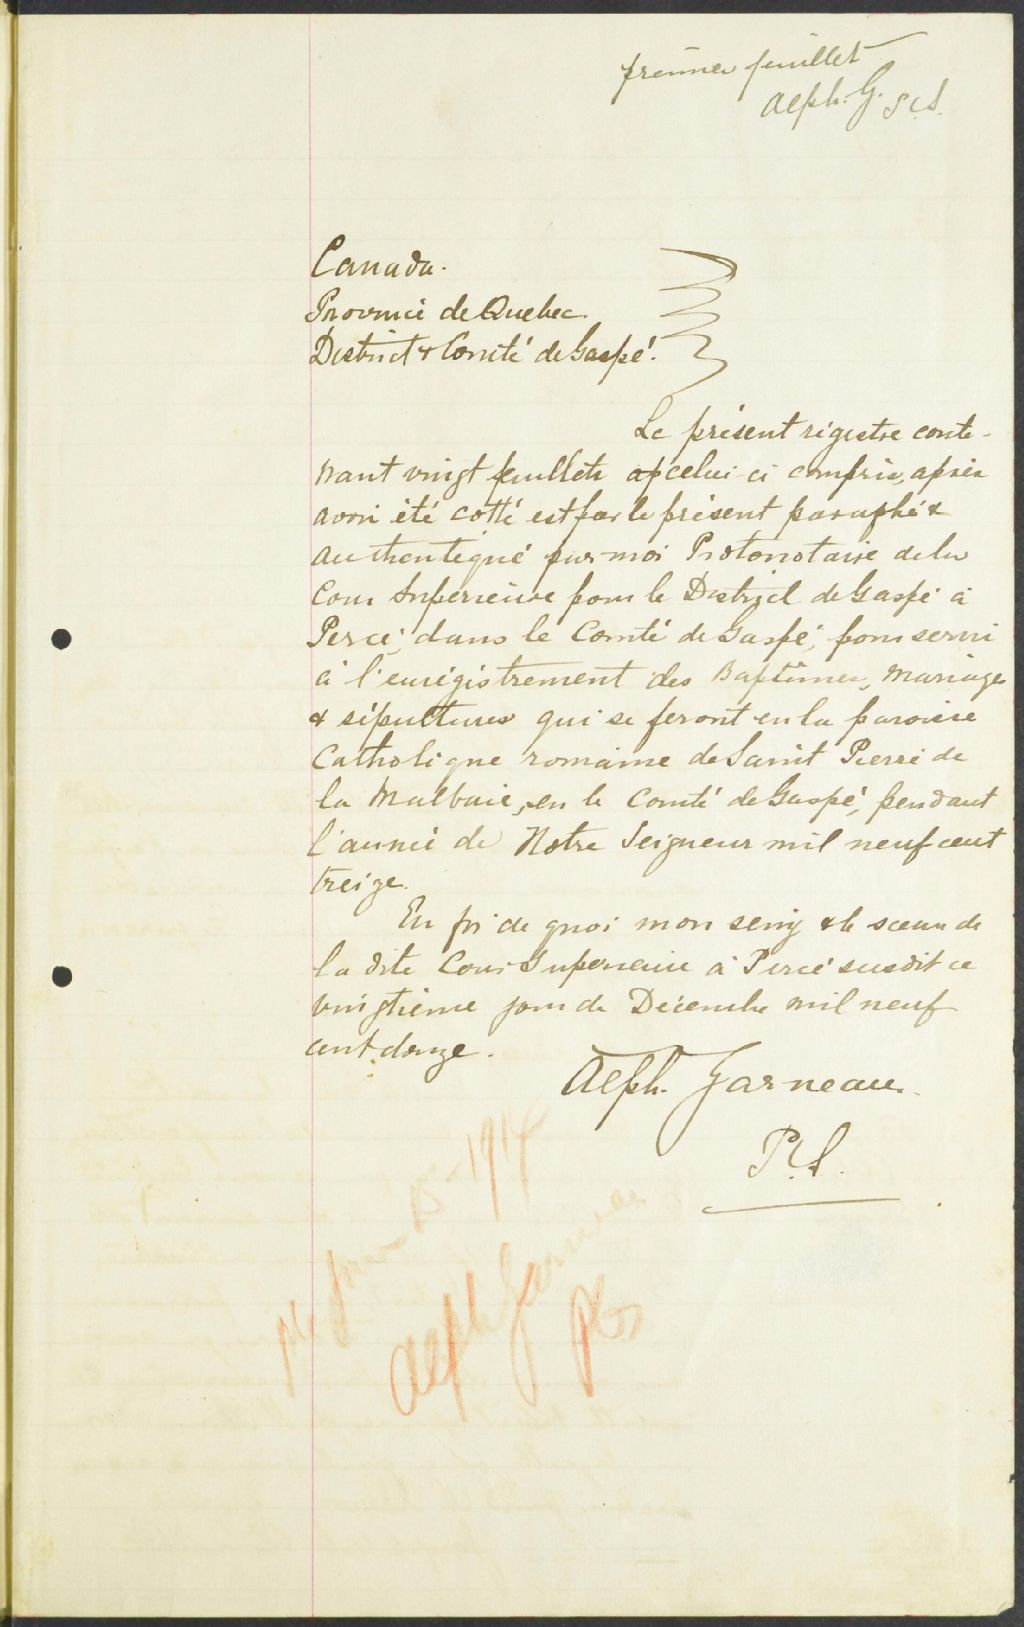 premier feuillet
Alph. G. P.C.S.
Canada.
Province de Quebec.
District & Comté de Gaspé.
Le présent régistre conte-
nant vingt feuillets celui-ci compris, après
avoir été cotté est par le présent paraphé &
authentiqué par moi Protonotaire de la
Cour Supérieure pour le District de Gaspé à
Percé, dans le Comté de Gaspé, pour servir
à l'enrégistrement des Baptêmes, Mariages
& sépultures qui se feront en la paroisse
Catholique romaine de Saint Pierre de
la Malbaie, en le Comté de Gaspé, pendant
l'année de Notre Seigneur mil neuf cent
treize.
En foi de quoi mon seing & le sceau de
la dite Cour Supérieure à Percé susdit ce
vingtième jour de Décembre mil neuf
cent douze.
Alph. Garneau
P.C.S.
1914
Alph Garneau